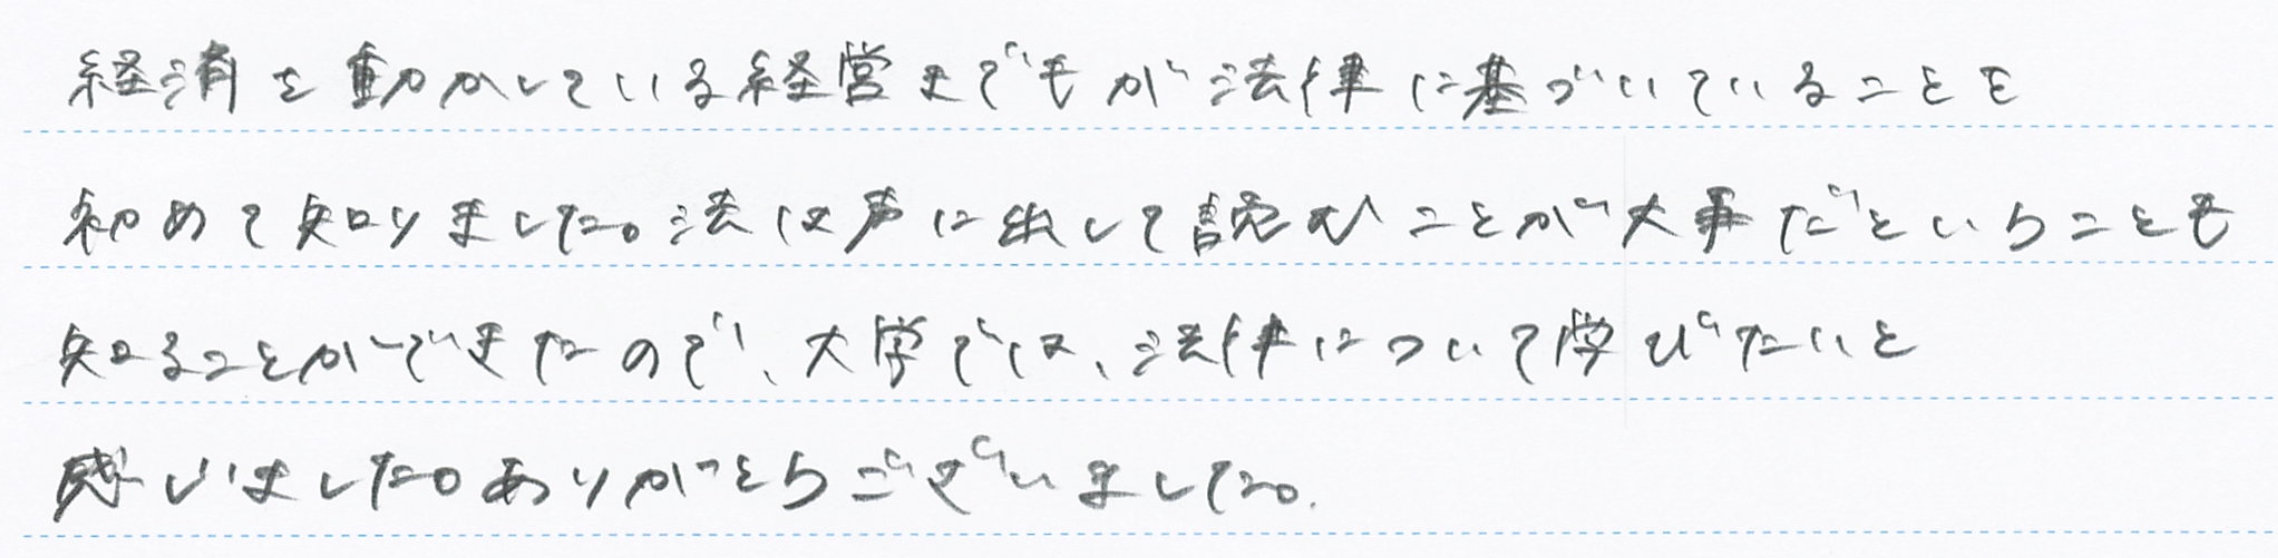 経済を動かしている経営まできもが法律に基づいていることを
初めて知りました。法は声に出して読むことが大事だということも
知ることができたので、大学では、法律について学びたいと
感じました。ありがとうございました。